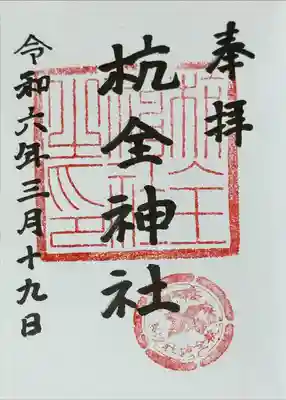 奉拝
杭全神社
令和六年三月十九日